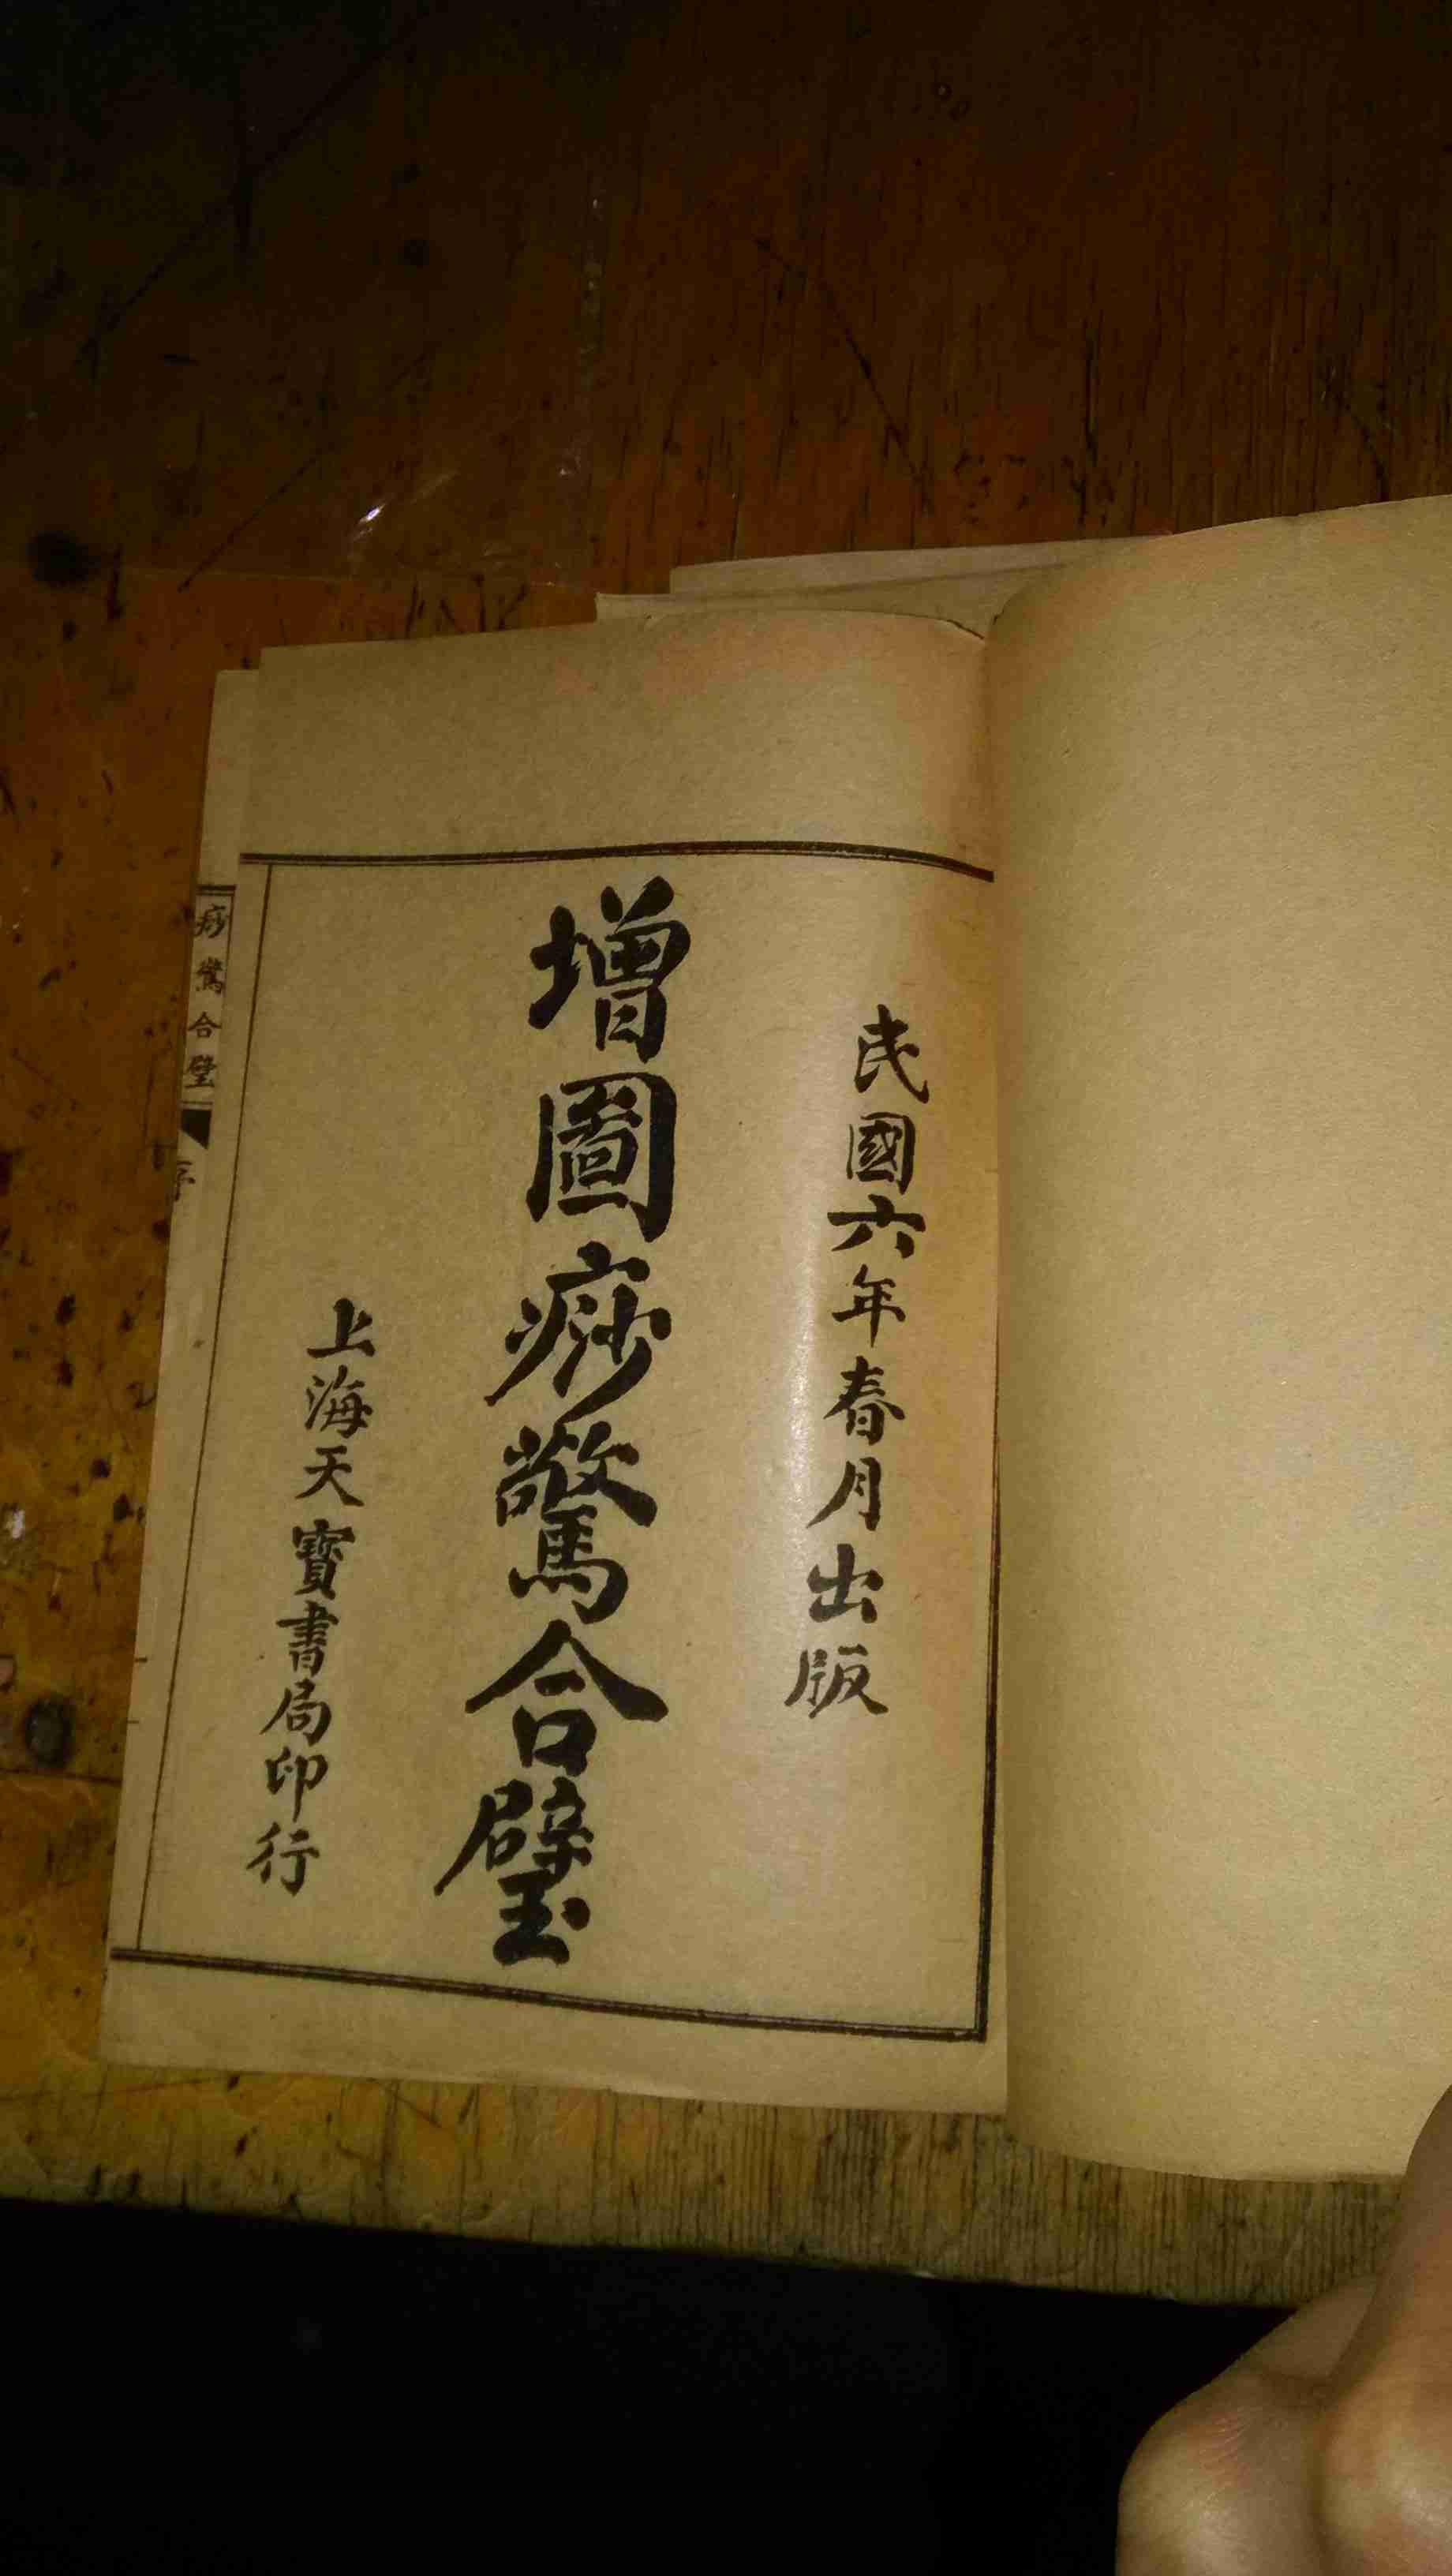 民國六年春月出版
增圖痧驚合璧
上海天寶書局印行
痧驚合璧
序